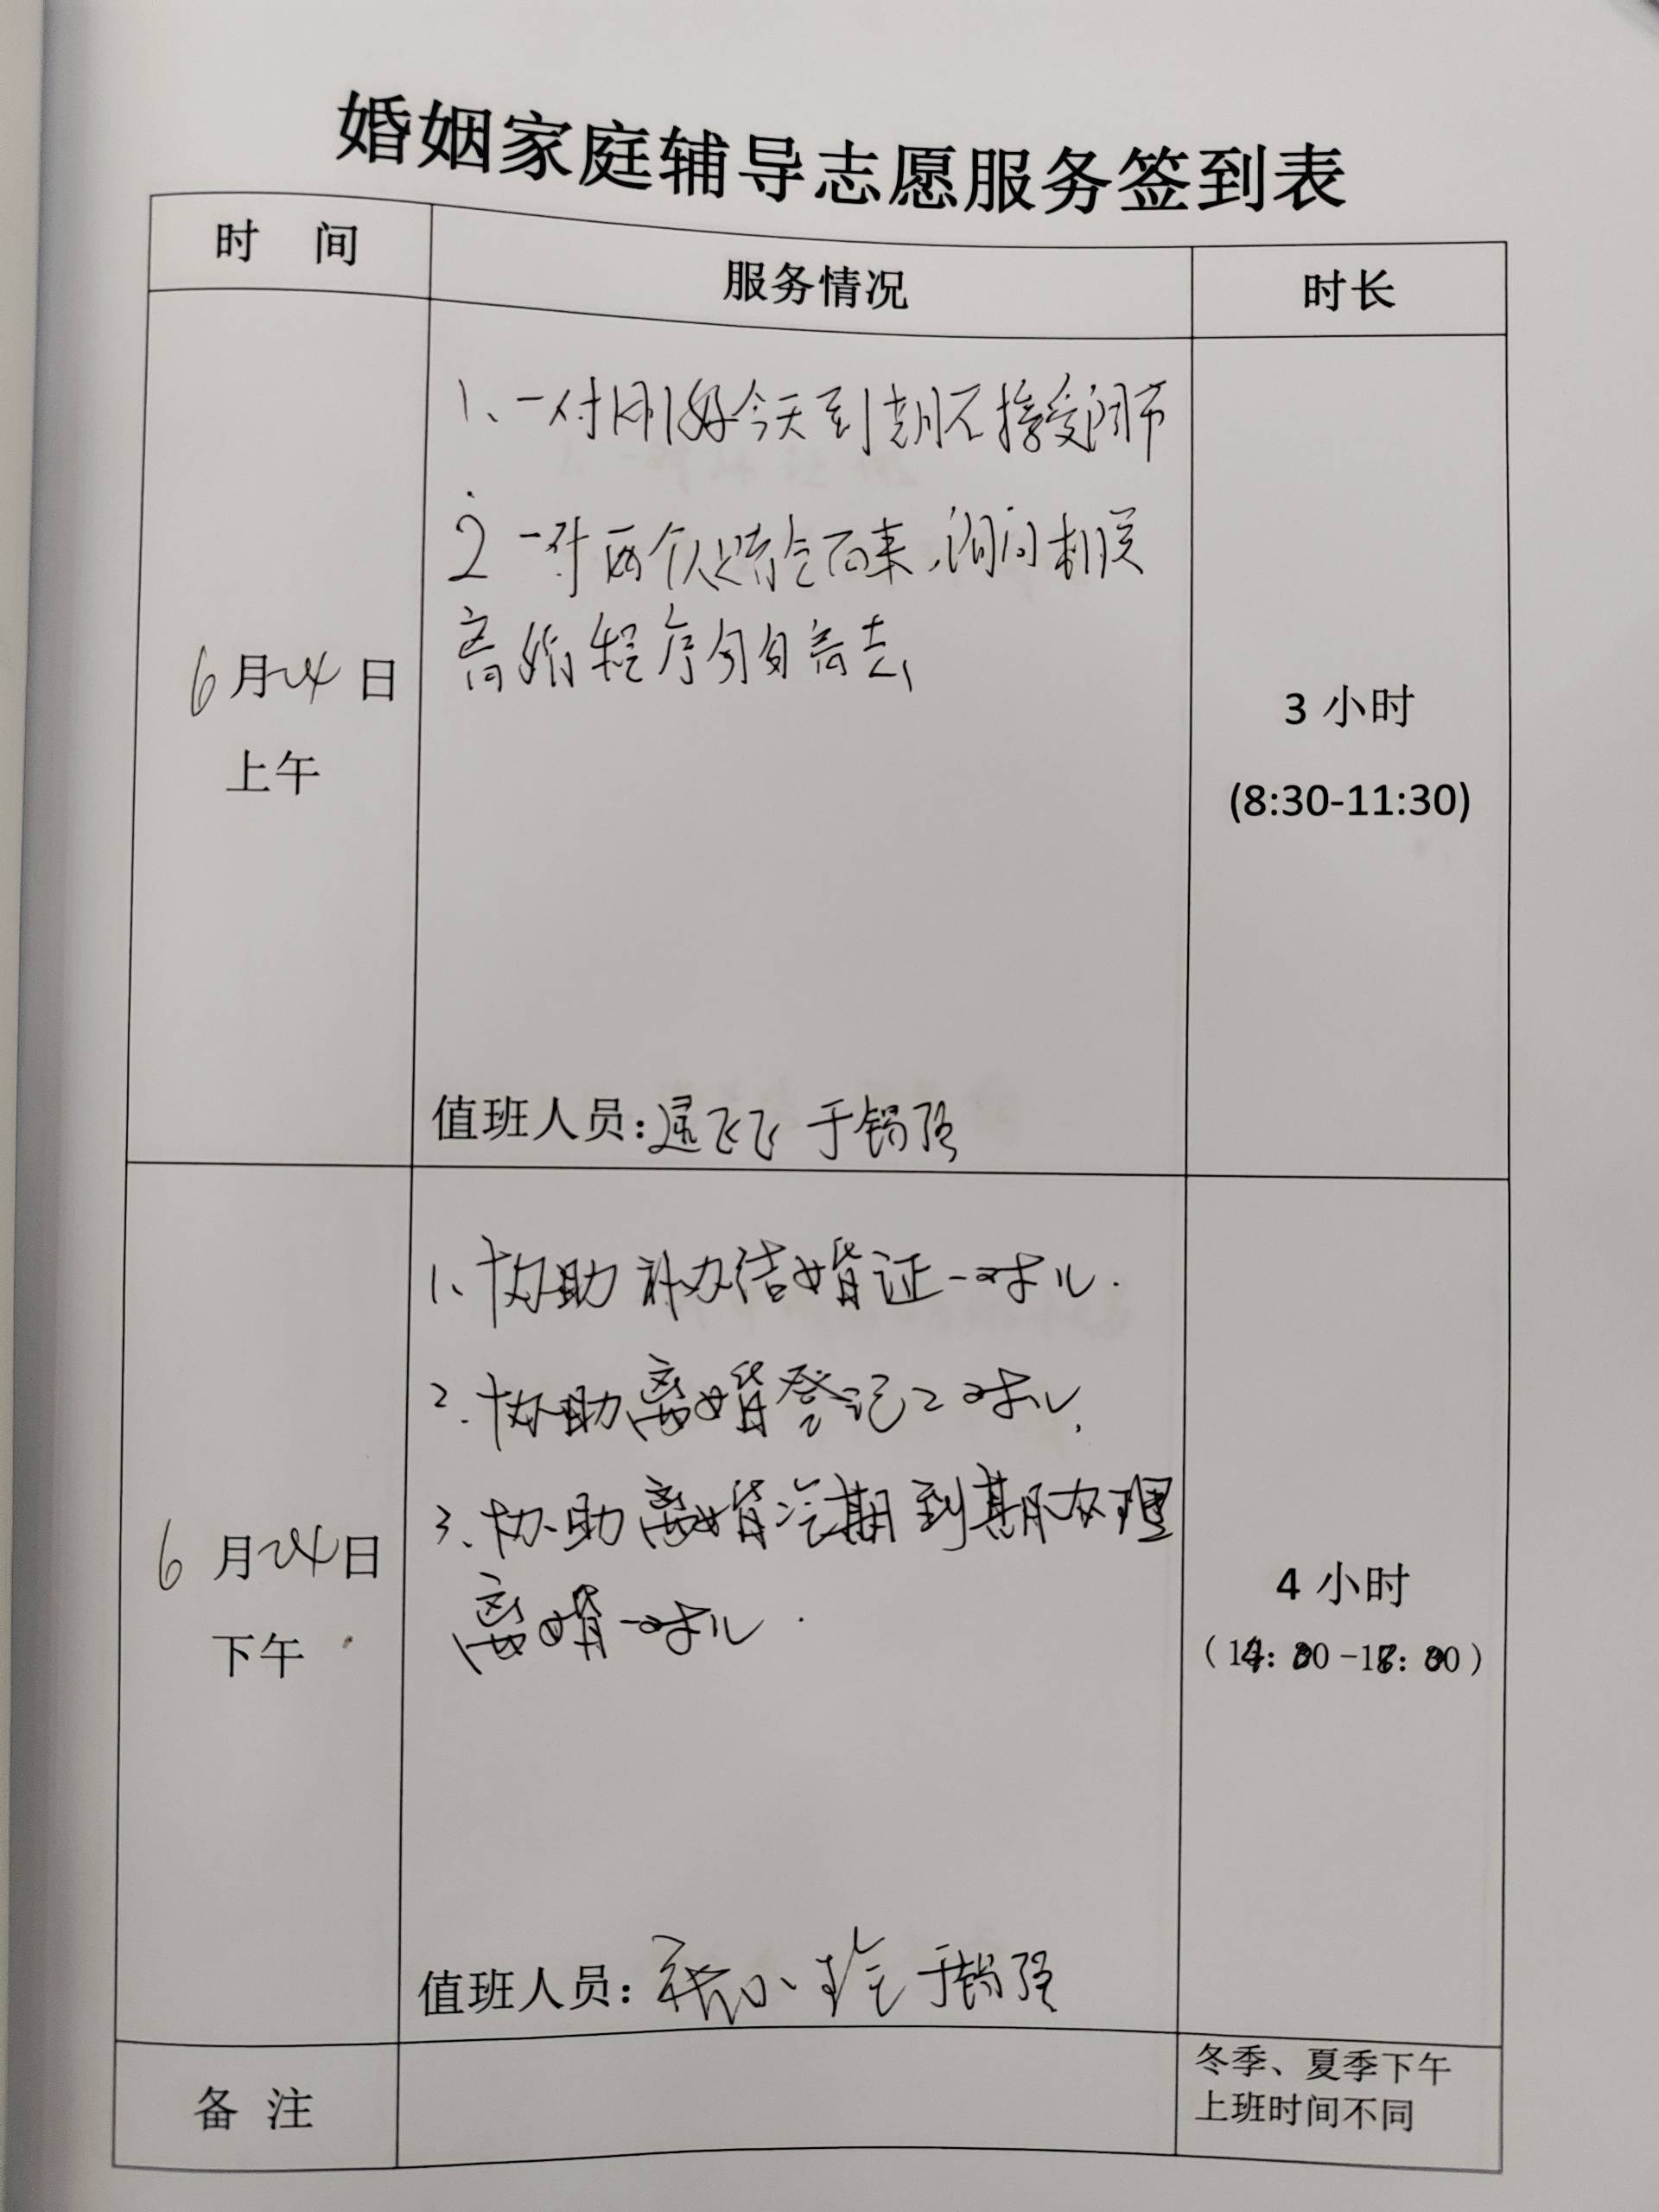 婚姻家庭辅导志愿服务签到表
时 间
服务情况
时长
1、一对刚好今天到期不接受调节
2 一对两个人赌气而来,询问相关
离婚程序匆匆离去
6月24日
上午
3 小时
(8:30-11:30)
值班人员: 飞飞 于锡强
1、协助补办结婚证一对儿.
2.协助离婚登记2对儿.
3.协助离婚冷期到期办理
离婚一对儿.
6 月24日
下午
4 小时
值班人员: 张小 于锡强
备 注
冬季、夏季下午
上班时间不同